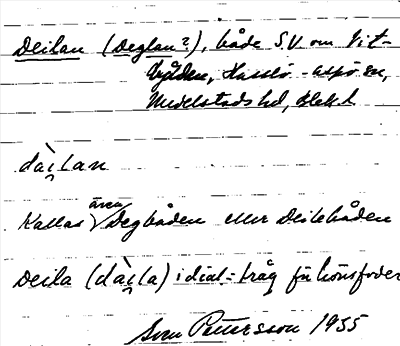 Deilan (Deglan?), både S.V om Vit-
båden, Hasslö-Aspö sn,
Medelstads hd, Blek. l
dài̯lan
Kallas även Degbåden eller Deilebåden
Deila (dài̯la) i dial. = tråg för hönsfoder
Sven Pettersson 1955